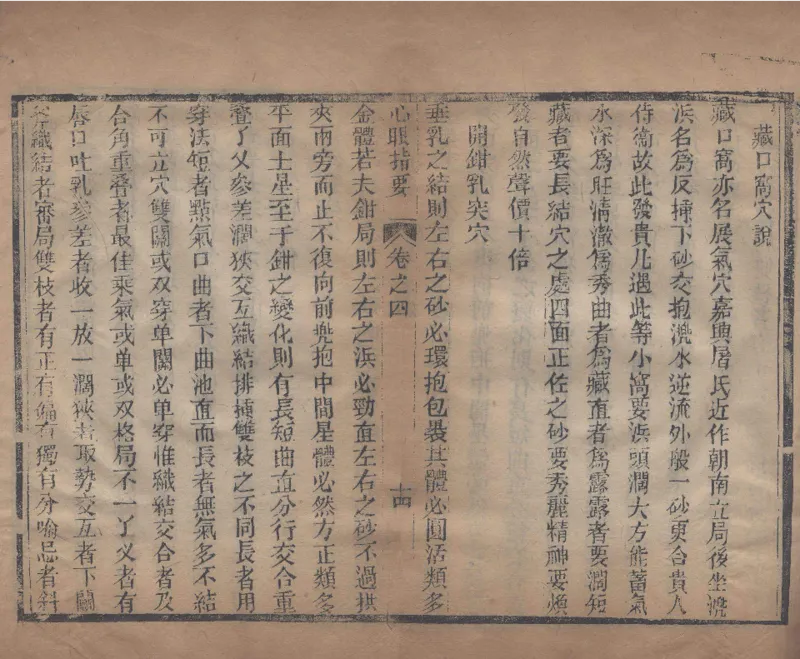 藏口窩穴說
藏口窩亦名展氣穴嘉興屠氏近作朝南立局後坐溉
浜名爲反捶下砂交抱溉水逆流外般一砂更合貴人
侍衞故此發貴凡遇此等小窩要浜頭濶大方能蓄氣
水深爲旺淸澈爲秀曲者爲藏直者爲露露者要濶短
藏者要長結穴之處四面正佐之砂要秀麗精神要煥
發自然聲價十倍
開鉗乳突穴
垂乳之結則左右之砂必環抱包裹其體必圓活類多
心眼指要 卷之四 十四
金體若夫鉗局則左右之浜必勁直左右之砂不過拱
夾兩旁而止不復向前兠抱中間星體必然方正類多
平面土星至于鉗之變化則有長短曲直分行交合重
疊了乂參差濶狹交互織結排捶雙枝之不同長者用
穿法短者點氣口曲者下曲池直而長者無氣多不結
不可立穴雙關或双穿单關必单穿惟織結交合者及
合角重疊者最佳乘氣或单或双格局不一丫乂者有
唇口吐乳參差者收一放一濶狹者取勢交互者下關
织結者審局雙枝者有正有偏有獨有分喻忌者斜